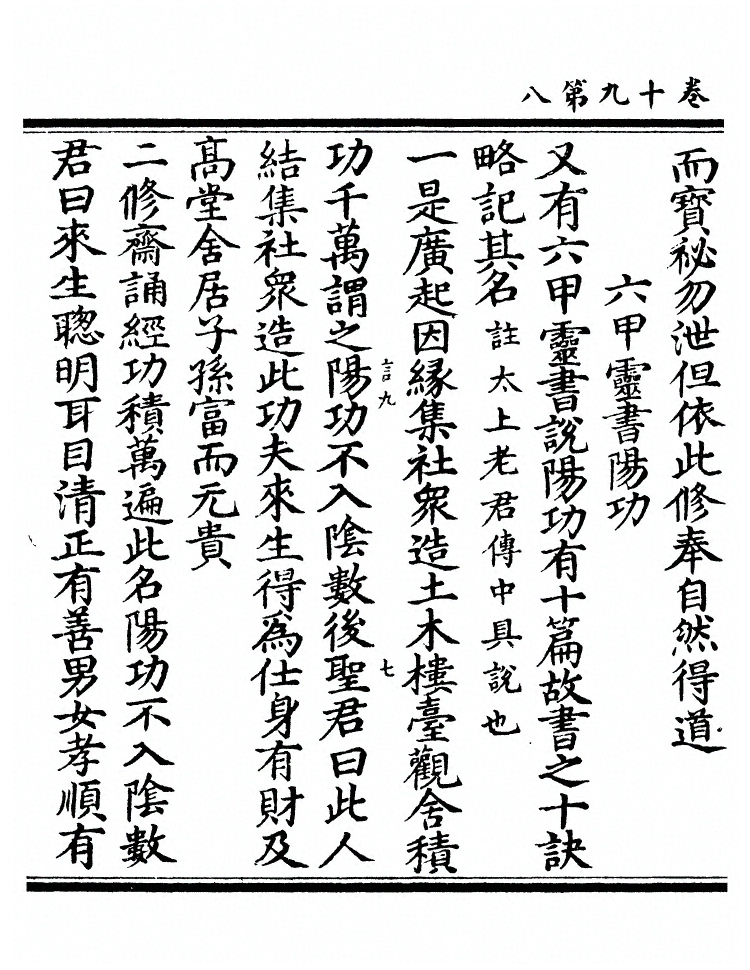 卷十九第八
而寶祕勿泄但依此修奉自然得道
六甲靈書陽功
又有六甲靈書說陽功有十篇故書之十訣
略記其名註太上老君傳中具說也
一是廣起因緣集社衆造土木樓臺觀舍積
言九 七
功千萬謂之陽功不入陰數後聖君曰此人
結集社衆造此功夫來生得爲仕身有財及
髙堂舍居子孫富而无貴
二修齋誦經功積萬遍此名陽功不入陰數
君曰來生聰明耳目清正有善男女孝順有